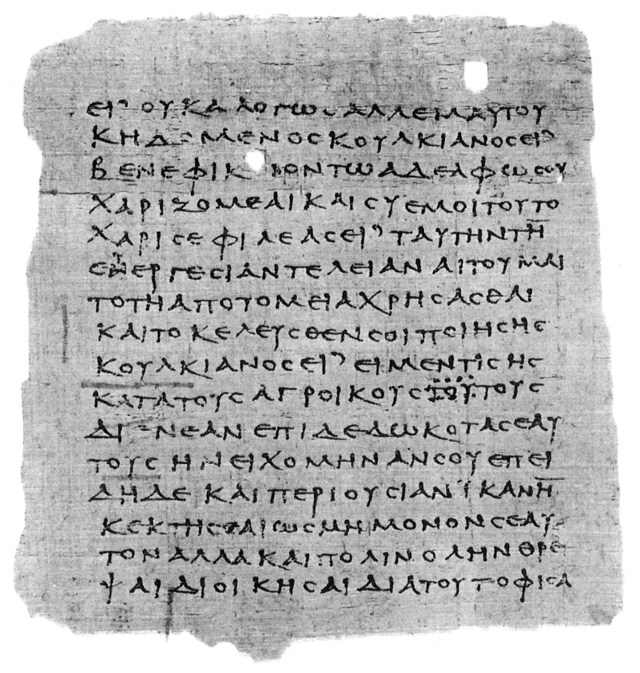 ΕΙ⁾ ΟΥΚΑΛΟΓΩϹΑΛΛΕΜΑΥΤΟΥ
ΚΗΔΟΜΕΝΟϹΚΟΥΛΚΙΑΝΟϹΕΙ⁾
ΒΕΝΕΦΙΚΙΟΝΤΩΑΔΕΛΦΩϹΟΥ
ΧΑΡΙΖΟΜΕΑΙΚΑΙϹΥΕΜΟΙΤΟΥΤΟ
ΧΑΡΙϹΕΦΙΛΕΑϹΕΙ⁾ΤΑΥΤΗΝΤΗ̅
ΕΥΕΡΓΕϹΙΑΝΤΕΛΕΙΑΝΑΙΤΟΥΜΑΙ
ΤΟΤΗΑΠΟΤΟΜΕΙΑΧΡΗϹΑϹΘΑΙ
ΚΑΙΤΟΚΕΛΕΥϹΘΕΝϹΟΙΠΟΙΗϹΗϹ
ΚΟΥΛΚΙΑΝΟϹΕΙ⁾ΕΙΜΕΝΤΙϹΗϹ
ΚΑΤΑΤΟΥϹΑΓΡΟΙΚΟΥϹΤΟΥΤΟΥϹ
ΔΙΕΝΔΕΑΝΕΠΙΔΕΔΩΚΟΤΑϹΕΑΥ
ΤΟΥϹΗΝΕΙΧΟΜΗΝΑΝϹΟΥΕΠΕΙ
ΔΗΔΕΚΑΙΠΕΡΙΟΥϹΙΑΝΪΚΑΝΗ̅
ΚΕΚΤΗϹΑΙΩϹΜΗΜΟΝΟΝϹΕΑΥ
ΤΟΝΑΛΛΑΚΑΙΠΟΛΙΝΟΛΗΝΘΡΕ
ΨΑΙΔΙΟΙΚΗϹΑΙΔΙΑΤΟΥΤΟΦΙϹΑ